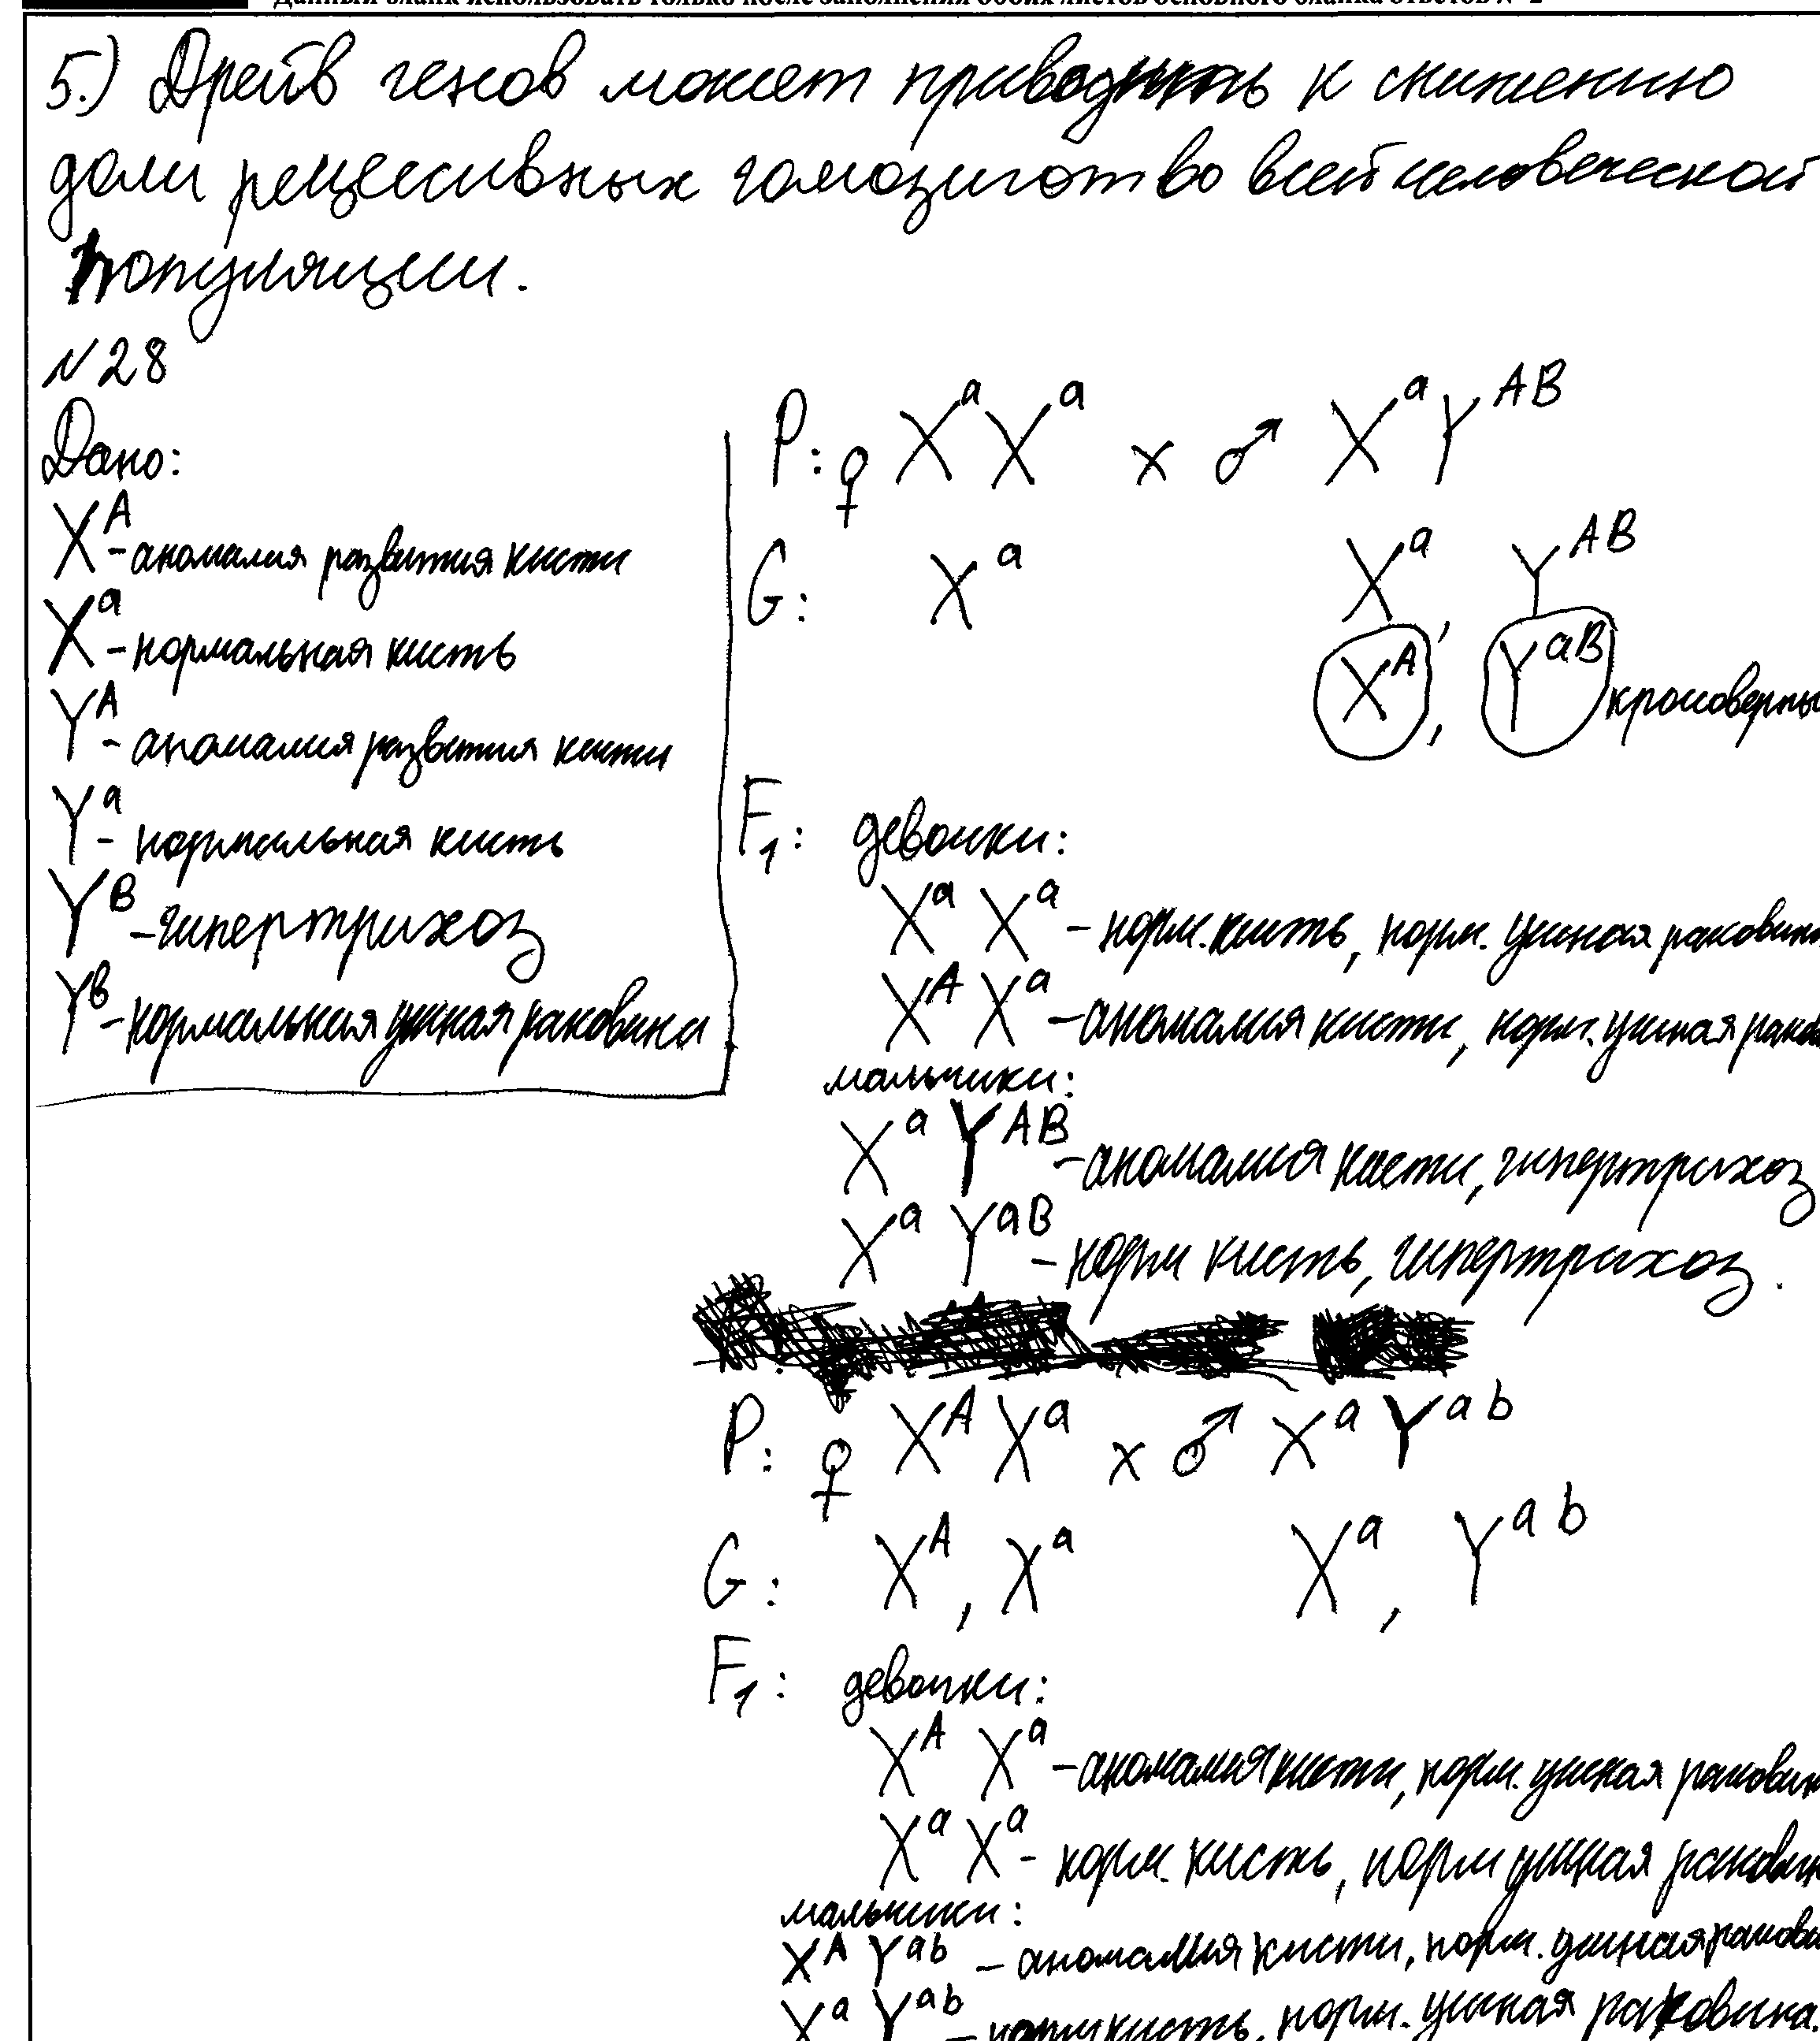 Данный бланк использовать только после заполнения обоих листов основного бланка ответов № 2
5.) Дрейв генов может приводить к снижению
доли рецессивных гомозигот во всей человеческой
популяции.
№28
Дано:
X^A - аномалия развития кисти
X^a - нормальная кисть
Y^A - аномалия развития кисти
Y^a - нормальная кисть
Y^B - гипертрихоз
Y^в - нормальная ушная раковина
P: ♀ X^a X^a x ♂ X^a Y^AB
G: X^a X^a, Y^AB
X^A, Y^aB кроссоверны
F1: девочки:
X^a X^a - норм. кисть, норм. ушная раковин
X^A X^a - аномалия кисти, норм. ушная раков
мальчики:
X^a Y^AB - аномалия кисти, гипертрихоз
X^a Y^aB - норм кисть, гипертрихоз.
P: ♀ X^A X^a x ♂ X^a Y^ab
G: X^A, X^a X^a, Y^ab
F1: девочки:
X^A X^a - аномалия кисти, норм. ушная раковин
X^a X^a - норм. кисть, норм ушная раковин
мальчики:
X^A Y^ab - аномалия кисти, норм. ушная раков
X^a Y^ab - норм кисть, норм. ушная раковина.